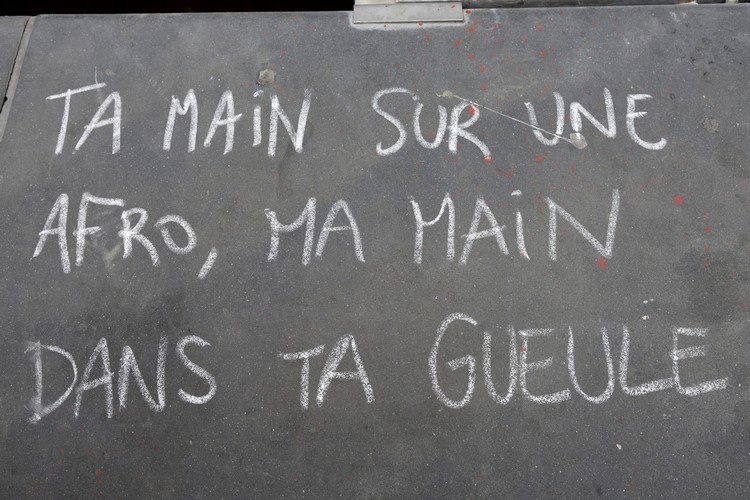 TA MAiN SUR UNE
AFRO, MA MAiN
DANS TA GUEULE